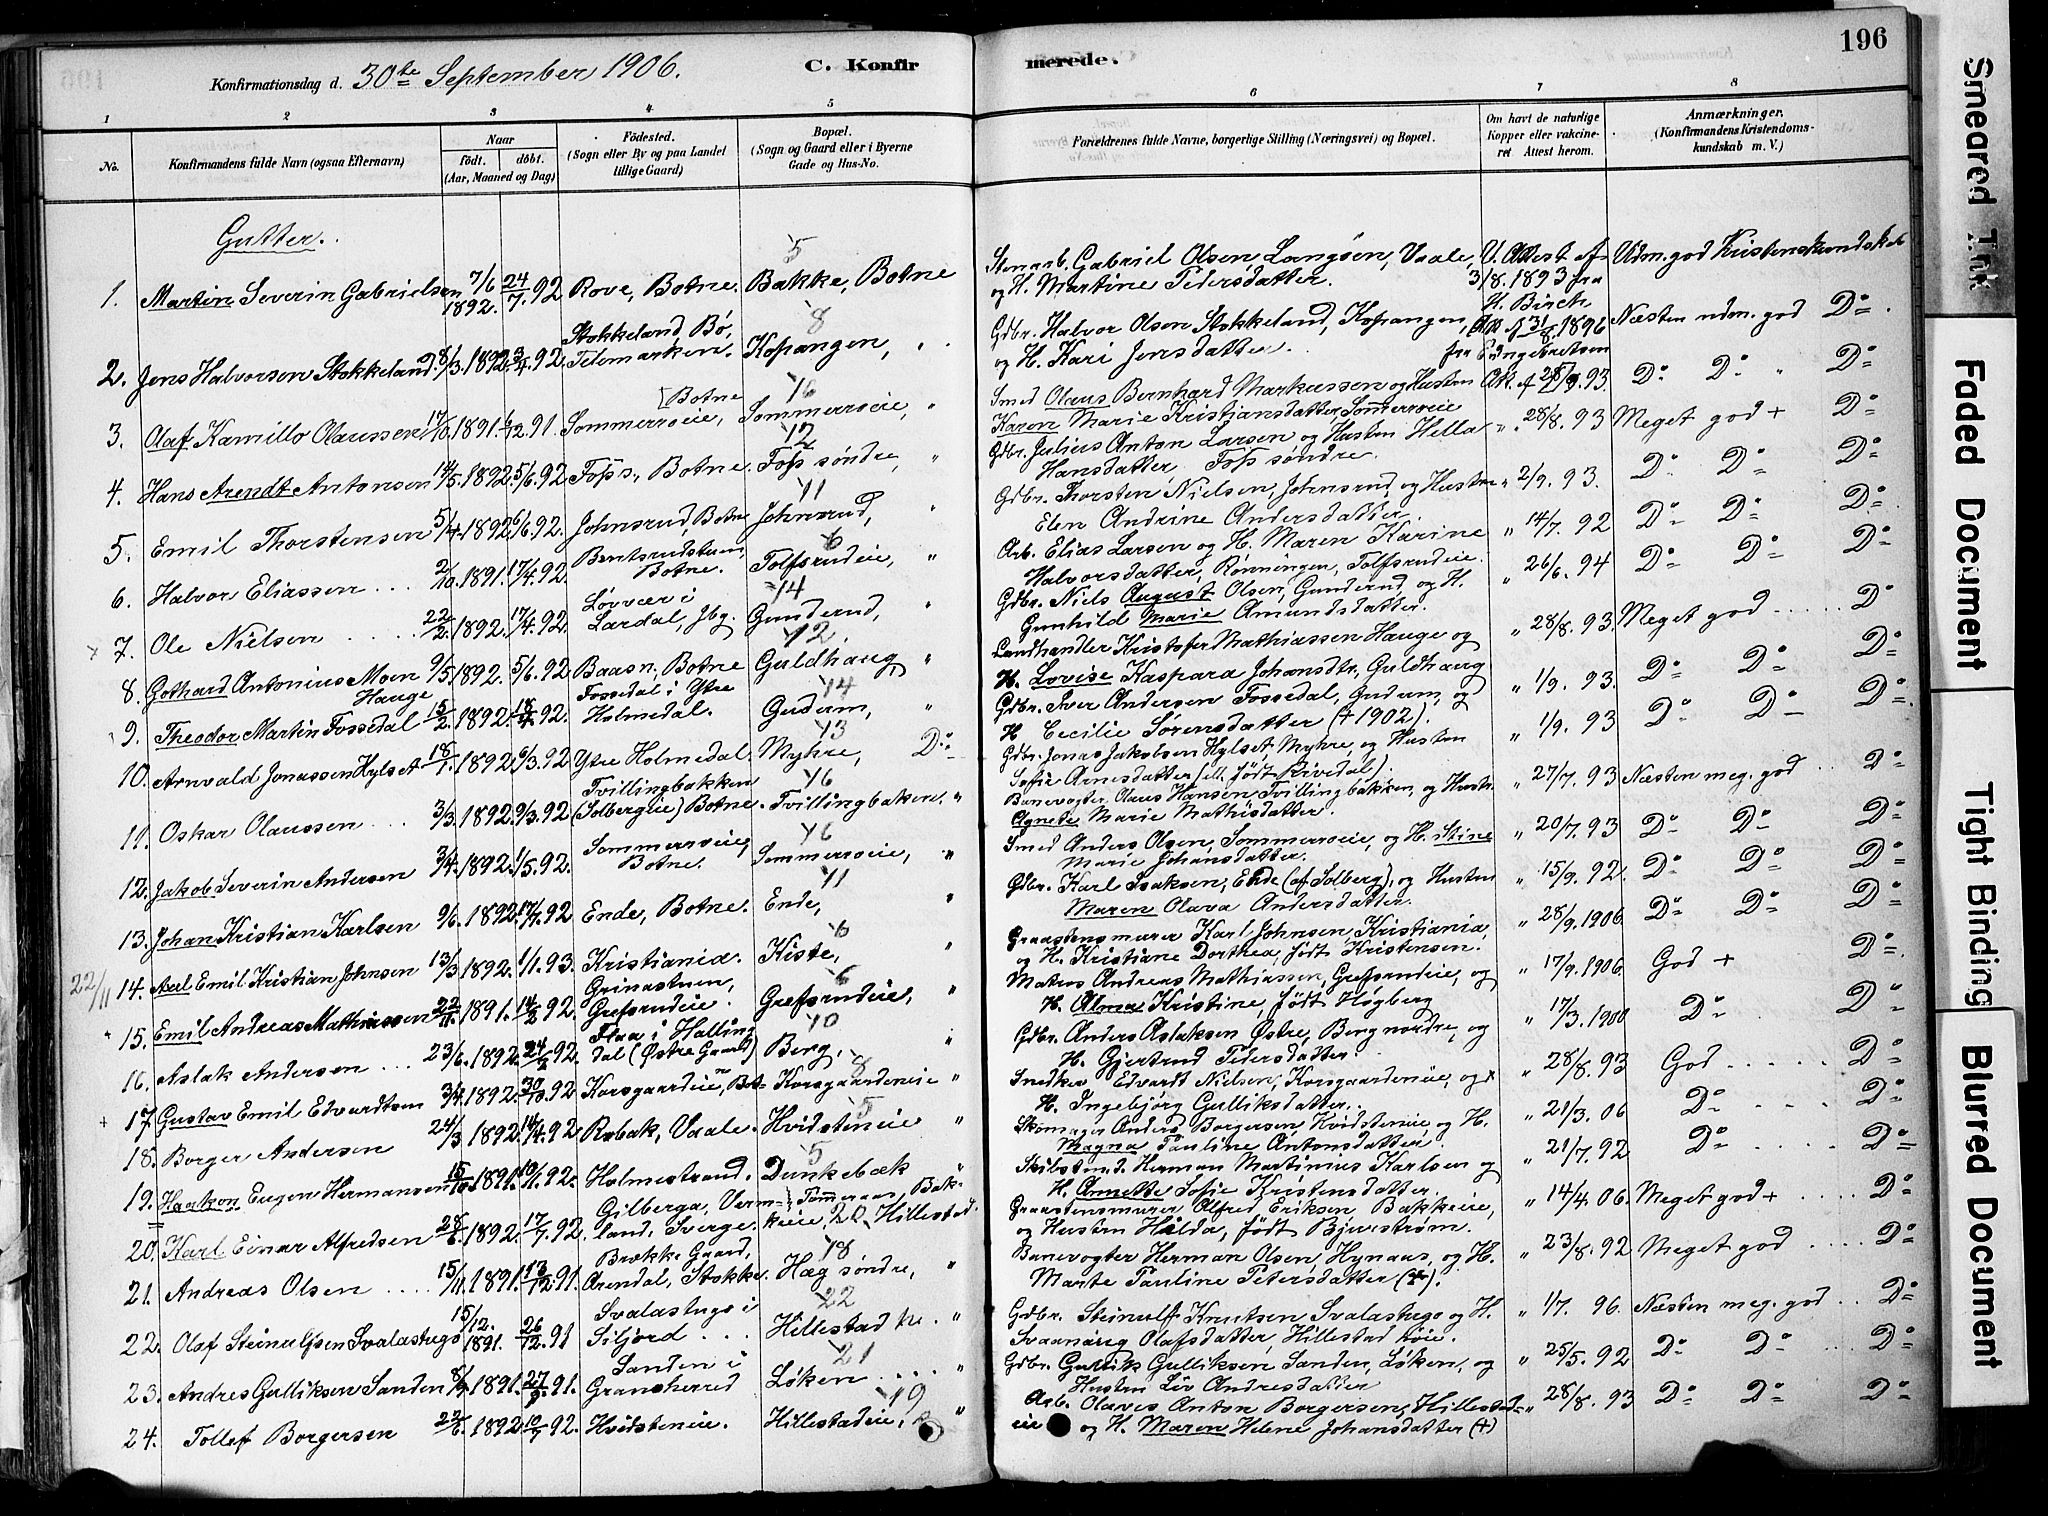 196
Konfirmationsdag d. 30te September 1906.
C. Konfir
merede.
1 2 3 4 5 6 7 8
No. Konfirmandens fulde Navn (ogsaa Efternavn) Naar født. døbt. (Aar, Maaned og Dag) Fødested. (Sogn eller By og paa Landet tillige Gaard) Bopæl. (Sogn og Gaard eller i Byerne Gade og Hus-No. Forældrenes fulde Navne, borgerlige Stilling (Næringsvei) og Bopæl. Om havt de naturlige Kopper eller vakcineret Attest herom. Anmærkninger. (Konfirmandens Kristendomskundskab m. V.)
Gutter.
1. Martin Severin Gabrielsen 7/6 1892. 24/7. 92 Rove, Botne. 5 Bakke, Botne Stenarb. Gabriel Olsen Langøen, Vaale, og H. Martine Pedersdatter. V. Attest af 3/8. 1893 fra H. Birch Udm. god Kristenskundskab
2. Jens Halvorsen Stokkeland 8/3. 1892. 3/4. 92 Stokkeland, Bø, Telemarken. 8 Kopangen, Gdbr. Halvor Olsen Stokkeland, Kopangen, og H. Kari Jensdatter. 31/8. 1896 fra Næsten udm. god Do
3. Olaf Kamillo Olaussen 17/10. 1891. 6/12. 91. Sommerroeie, Botne 16 Sommerroeie, " Smed Olaus Bernhard Markussen og Hustru Karen Marie Kristiansdatter, Sommerroeie 93. Do Do " Do
4. Hans Arendt Antonsen 14/5. 1892. 5/6. 92 Foss, Botne. 12 Foss søndre, " Gdbr. Julius Anton Larsen og Hustru Hella Hansdatter, Foss søndre. ". 28/8. 93 Meget god + Do
5. Emil Thorstensen 5/4. 1892 6/6. 92. Johnsrud, Botne 11 Johnsrud, " Gdbr. Thorsten Nielsen, Johnsrud, og Hustru Elen Andrine Andersdatter. " 2/9. 93. Do Do Do
6. Halvor Eliassen ... 2/10. 1891. 17/4. 92. Bentsrudstuen, Botne. 6 Tolfsrudeie, " Arb. Elias Larsen og H. Maren Karine Halvorsdatter, Rønningen, Tolfsrudeie. " 14/7. 92 Do Do Do
7. Ole Nielsen ..... 22/2. 1892. 17/4. 92. Løvvær i Lardal, Jbg. 14 Gunderud, " Gdbr. Niels August Olsen, Gunderud, og H. Gunhild Marie Amundsdatter. " 26/6. 94 Do Do Do
8. Gothard Antonius Moen Hauge 9/5. 1892. 5/6. 92 Baasn, Botne 12 Guldhaug, " Landhandler Kristofer Mathiassen Hauge og H. Lovise Kaspara Johansdtr., Guldhaug " 28/8. 93. Meget god ..... Do
9. Theodor Martin Fossedal 15/2. 1892. 18/4. 92. Fossedal i Ytre Holmedal. 14 Guderum, " Gdbr. Iver Andersen Fossedal, Guderum, og H. Cecilie Sørensdatter (+ 1902). " 1/9. 93. Do Do Do
10. Arnvald Jonassen Hylset 18/1. 1892. 6/3. 92 Ytre Holmedal. 13 Myhre, Do Gdbr. Jonas Jakobsen Hylset, Myhre, og Hustru Sofie Arnesdatter (ell. født Rivedal). " 1/9. 93 Do Do Do
11. Oskar Olaussen ... 3/3. 1892. 9/3. 92 Tvillingbakken (Solbergeie) Botne. 16 Tvillingbakken. " Banevogter, Olaus Hansen Tvillingbakken, og Hustr. Agnete Marie Mathisdatter. " 27/7. 93 Næsten meg. god ... Do
12. Jakob Severin Andersen 3/4. 1892. 1/5. 92. Sommerroeie, Botne. 16 Sommerroeie, " Smed Anders Olsen, Sommerroeie, og H. Stine Marie Johansdatter. " 20/7. 93 Do Do Do
13. Johan Kristian Karlsen 9/6. 1892. 17/7. 92 Ende, Botne. 11 Ende, " Gdbr. Karl Isaksen, Ende (af Solberg), og Hustru Maren Olava Andersdatter. " 15/9. 92. Do Do Do
22/11 14. Axel Emil Kristian Johnsen 13/3. 1892. 1/1. 93. Kristiania. 6 Kiste, " Graastensmurer Karl Johnsen, Kristiania, og H. Kristiane Dorthea, født Kristensen. " 28/9. 1906 Do Do Do
15. Emil Andreas Mathiassen 22/11. 1891. 14/2. 92. Grinastuen, Grefsrudeie. 6 Grefsrudeie, " Matros Andreas Mathiassen, Grefsrudeie, og H. Alma Kristine, født Høgberg " 17/9. 1906. God + Do
16. Aslak Andersen ... 23/6. 1892. 24/7. 92. Flaa i Hallingdal (Østre Gaard) 10 Berg, " Gdbr. Anders Aslaksen Østre, Berg nordre, og H. Gjertrud Pedersdatter. " 17/3. 1900 Do Do
+ 17. Gustav Emil Edvardtsen 3/4. 1892. 30/10. 92 Korsgaardeie, Bot- 8 Korsgaardeneie " Snedker Edvardt Nielsen, Korsgaardeneie, og H. Ingebjørg Gulliksdatter. " 28/8. 93 God .... Do
18. Borger Andersen 24/3 1892. 14/4. 92 Robak, Vaale. 5 Hvidsteneie " Skomager Anders Borgersen Hvidsteneie og H. Magna Pauline Antonsdatter. " 21/3. 06 Do .... Do
19. Haakon Eugen Hermansen 15/10. 1891. 10/1. 92. Holmestrand. 5 Dunkebæk " Skibstmd. Herman Martinius Karlsen og H. Annette Sofie Kristensdatter. " 21/7. 92 Do .... Do
20. Karl Einar Alfredsen 28/5. 1892. 17/7. 92. Gilberga, Vermland, Sverge. Tømmeraas, Bakkeie, 20, Hillestad. Graastensmurer Alfred Eriksen Bakkeie, og Hustru Hilda, født Bjurstrøm. " 14/4. 06. Meget god + .... Do
21. Andreas Olsen .... 15/11. 1891. 13/12. 91. Brække Gaard, Arendal, Stokke. 18 Hæg søndre, " Banevogter Herman Olsen, Hynaas, og H. Marte Pauline Petersdatter (+). " 23/8. 92 Meget god .... Do
22. Olaf Steinulfsen Svalastugo 15/12. 1891. 26/12. 91 Svalastugo i Siljord ... 22 Hillestad hø. " Gdbr. Steinulf Knutsen Svalastugo og H. Svaanaug Olafsdatter, Hillestad høie. " 1/7. 96. Næsten meg. god .. Do
23. Andres Gulliksen Sanden 8/9. 1891. 27/9. 91. Sanden i Gransherred 21 Løken .... " Gdbr. Gullik Gulliksen Sanden, Løken, og Hustru Liv Andresdatter " 25/5. 92 Do Do Do
24. Tollef Borgersen 22/6. 1892. 10/7. 92. Hvidsteneie. 19 Hillestadeie, " Arb. Olaves Anton Borgersen, Hillestadeie og H. Maren Helene Johansdatter (+) " 28/8. 93 Do Do Do
Smeared Ink
Faded Document
Tight Binding
Blurred Document